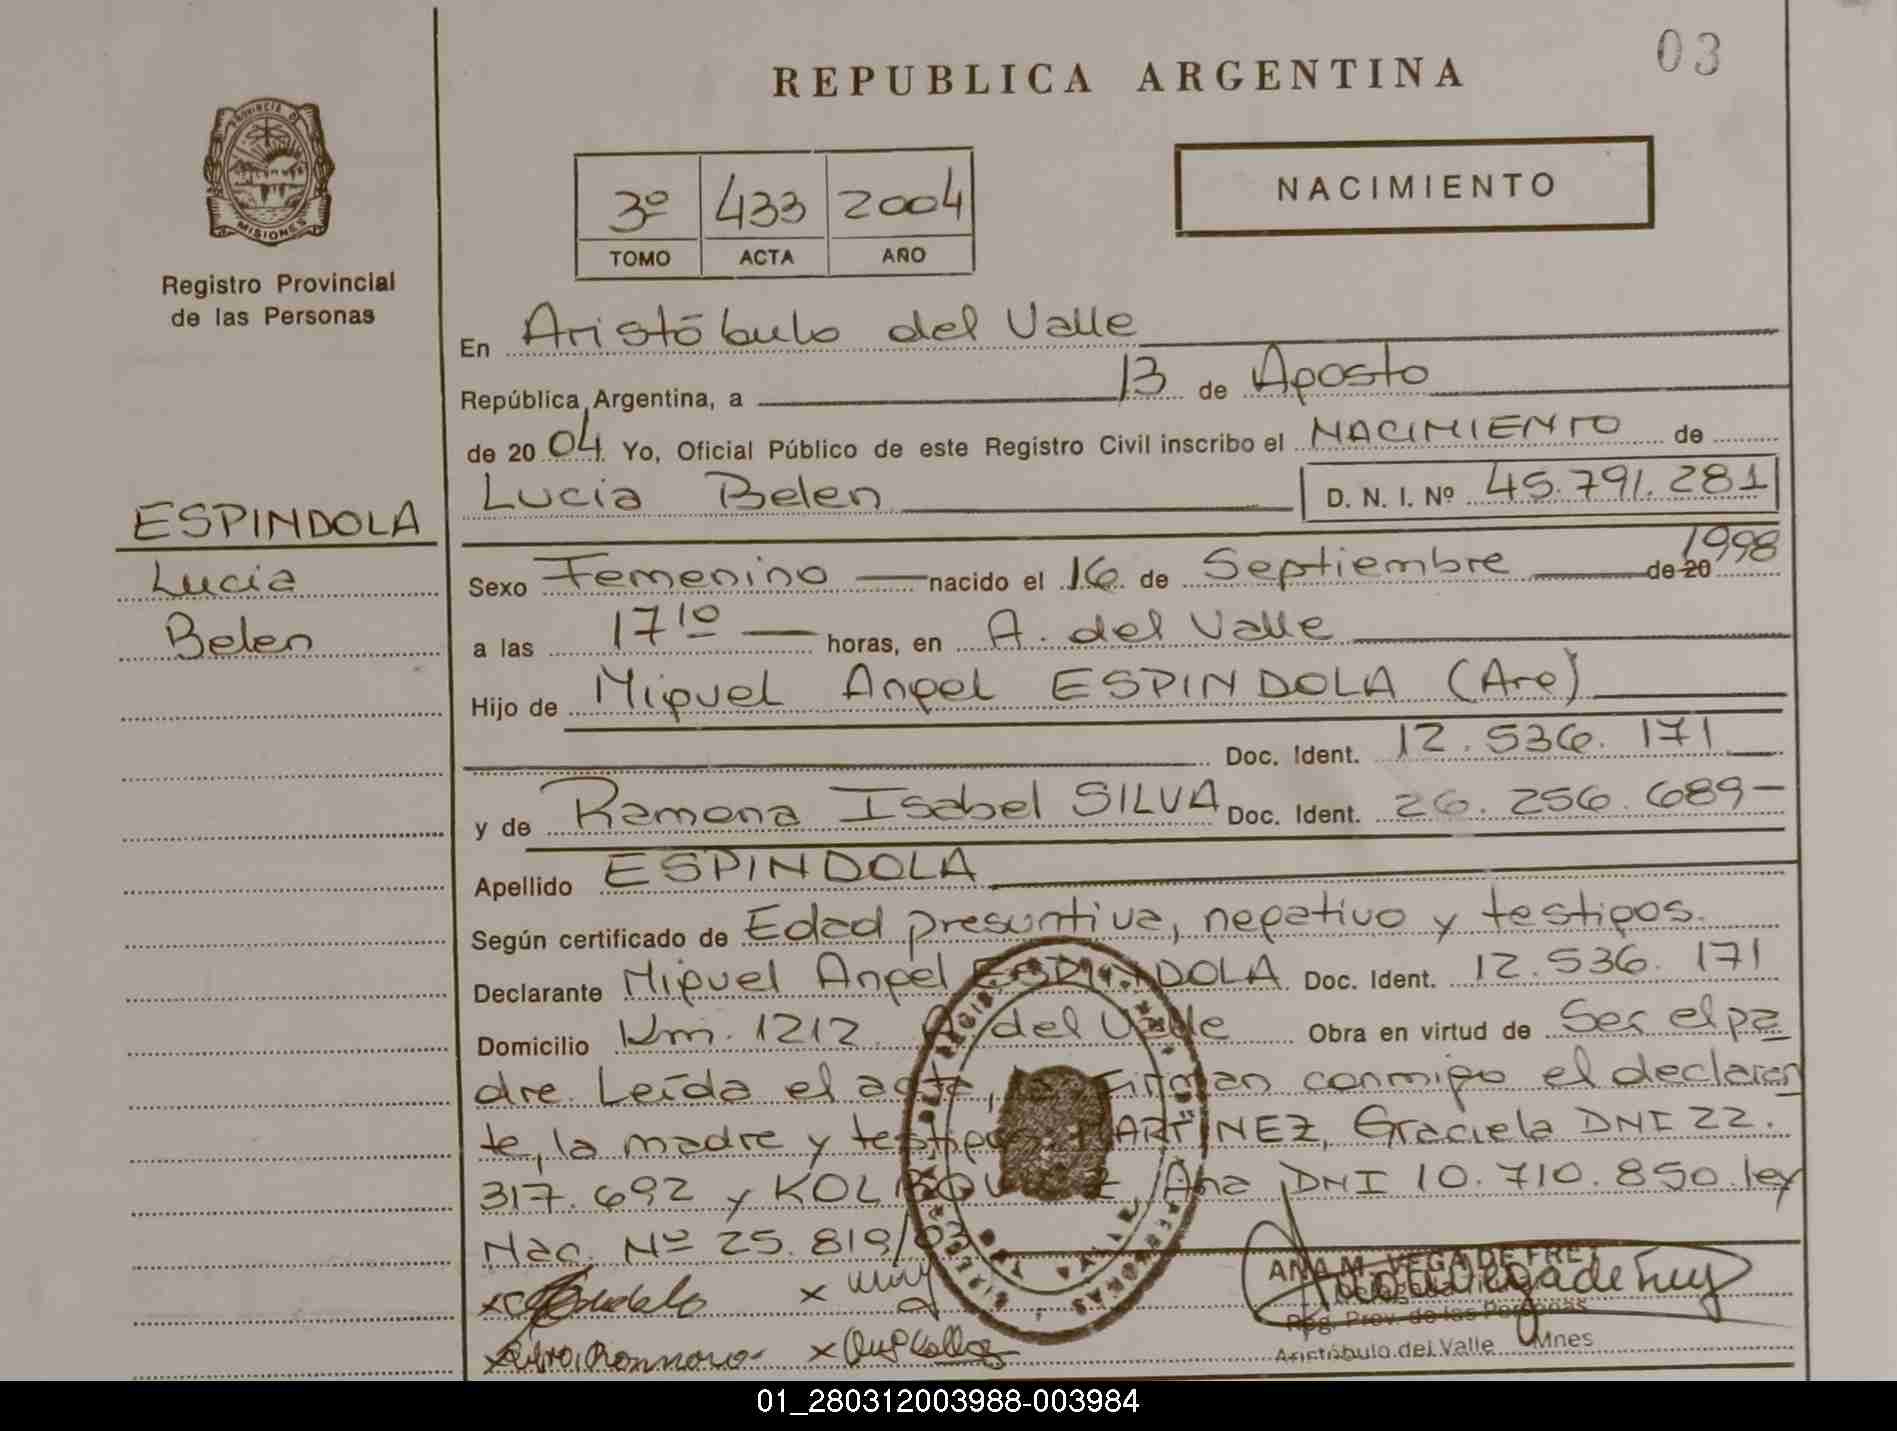 03
REPUBLICA ARGENTINA
PROVINCIA DE
MISIONES
Registro Provincial
de las Personas
3º 433 2004
TOMO ACTA AÑO
NACIMIENTO
En Aristóbulo del Valle
República Argentina, a 13 de Agosto
de 20 04 Yo, Oficial Público de este Registro Civil inscribo el NACIMIENTO de
Lucia Belen D. N. I. Nº 45.791.281
ESPINDOLA
Lucia
Belen
Sexo Femenino nacido el 16 de Septiembre de 20 1998
a las 17 10 horas, en A. del Valle
Hijo de Miguel Angel ESPINDOLA (Arg)
Doc. Ident. 12.536.171
y de Ramona Isabel SILVA Doc. Ident. 26.256.689-
Apellido ESPINDOLA
Según certificado de Edad presuntiva, negativo y testigos.
Declarante Miguel Angel ESPINDOLA Doc. Ident. 12.536.171
Domicilio Km. 1212. A. del Valle Obra en virtud de Ser el pa
dre. Leída el acta, la firman conmigo el declaran
te, la madre y testigos MARTINEZ, Graciela DNI 22.
317.692 y Ana DNI 10.710.850. ley
Nac. Nº 25.819/03
ANA M. VEGA DE FREY
Reg. Prov. de las Personas
Aristóbulo del Valle Mnes
01_280312003988-003984